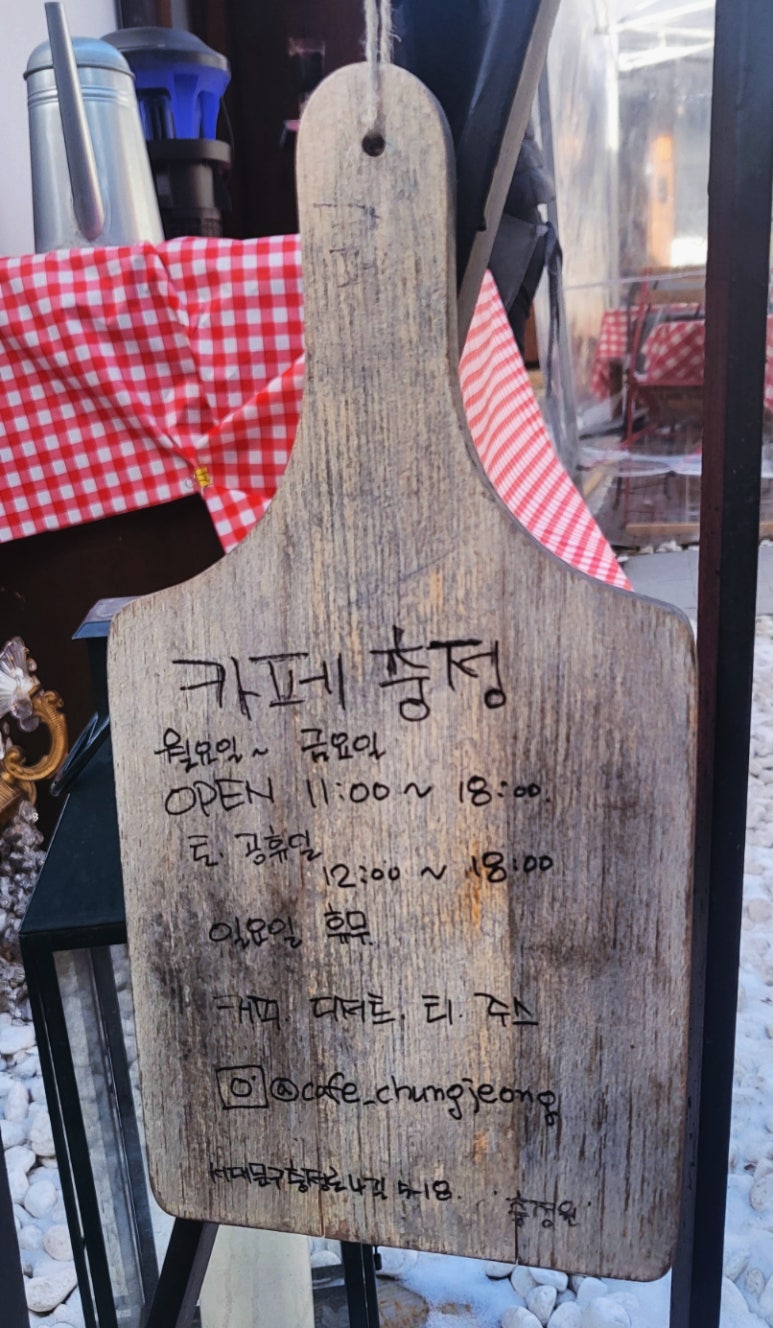 카페 충정
월요일 ~ 금요일
OPEN 11:00 ~ 18:00.
토. 공휴일
12:00 ~ 18:00
일요일 휴무
커피. 디저트. 티. 주스
@cafe_chungjeong
서대문구 충정로 나길 5-18.
충정원